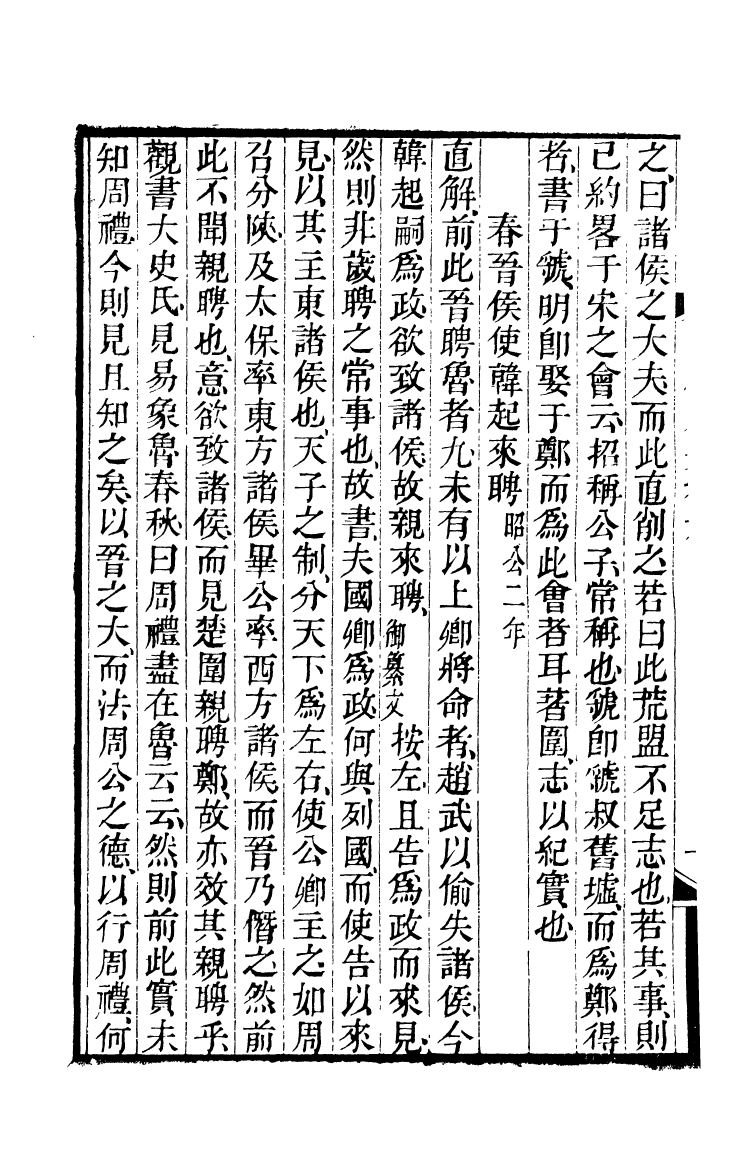 之、曰諸侯之大夫而此直削之若曰此荒盟不足志也、若其事、則
已約畧于宋之會云、招稱公子、常稱也、虢、卽虢叔舊墟、而爲鄭得
者、書于虢、明卽娶于鄭而爲此會者耳、著圍、志以紀實也
春晉侯使韓起來聘昭公二年
直解、前此晉聘魯者九、未有以上卿將命者、趙武以偷失諸侯、今
韓起嗣爲政、欲致諸侯、故親來聘、御纂文　按左、且告爲政而來見、
然則非歲聘之常事也、故書、夫國卿爲政、何與列國、而使告以來
見、以其主東諸侯也、天子之制、分天下爲左右、使公卿主之、如周
召分陝、及太保率東方諸侯、畢公率西方諸侯、而晉乃僭之、然前
此不聞親聘也、意欲致諸侯、而見楚圍親聘鄭、故亦效其親聘乎、
觀書大史氏、見易象魯春秋、曰周禮盡在魯云云、然則前此實未
知周禮、今則見且知之矣、以晉之大、而法周公之德、以行周禮、何